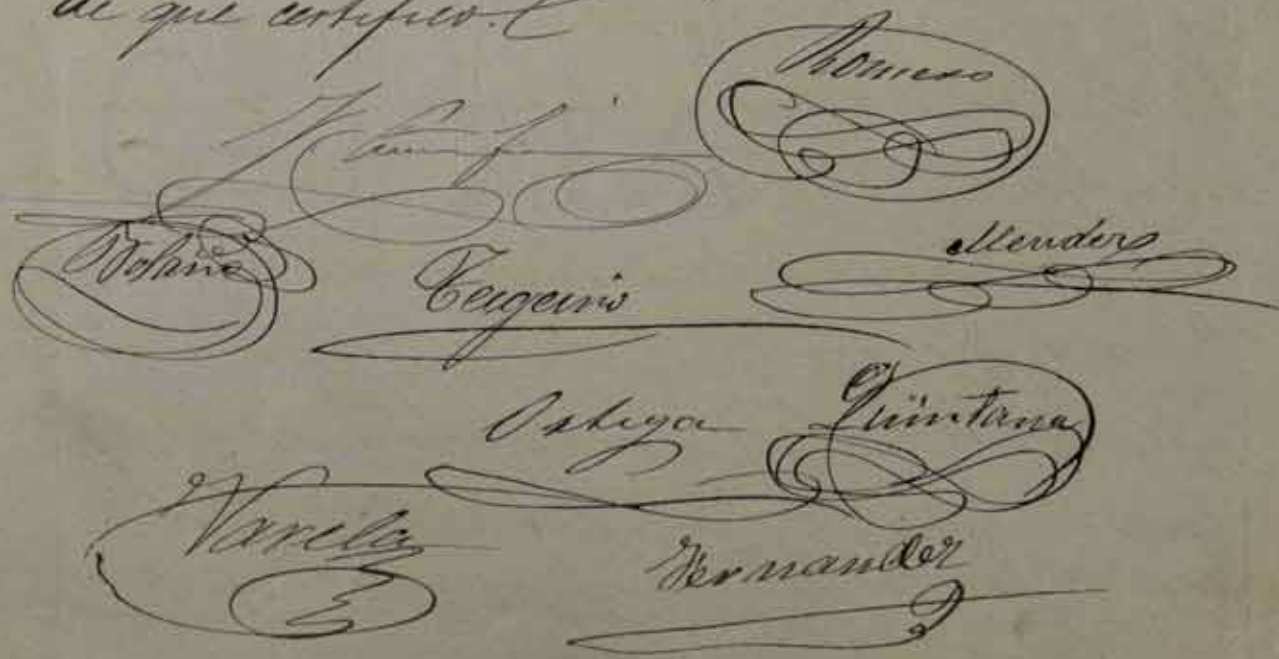 de que certifico.
Romero
Bolaño
Teigeiro
Mendez
Ortega Quintana
Varela
Hernandez